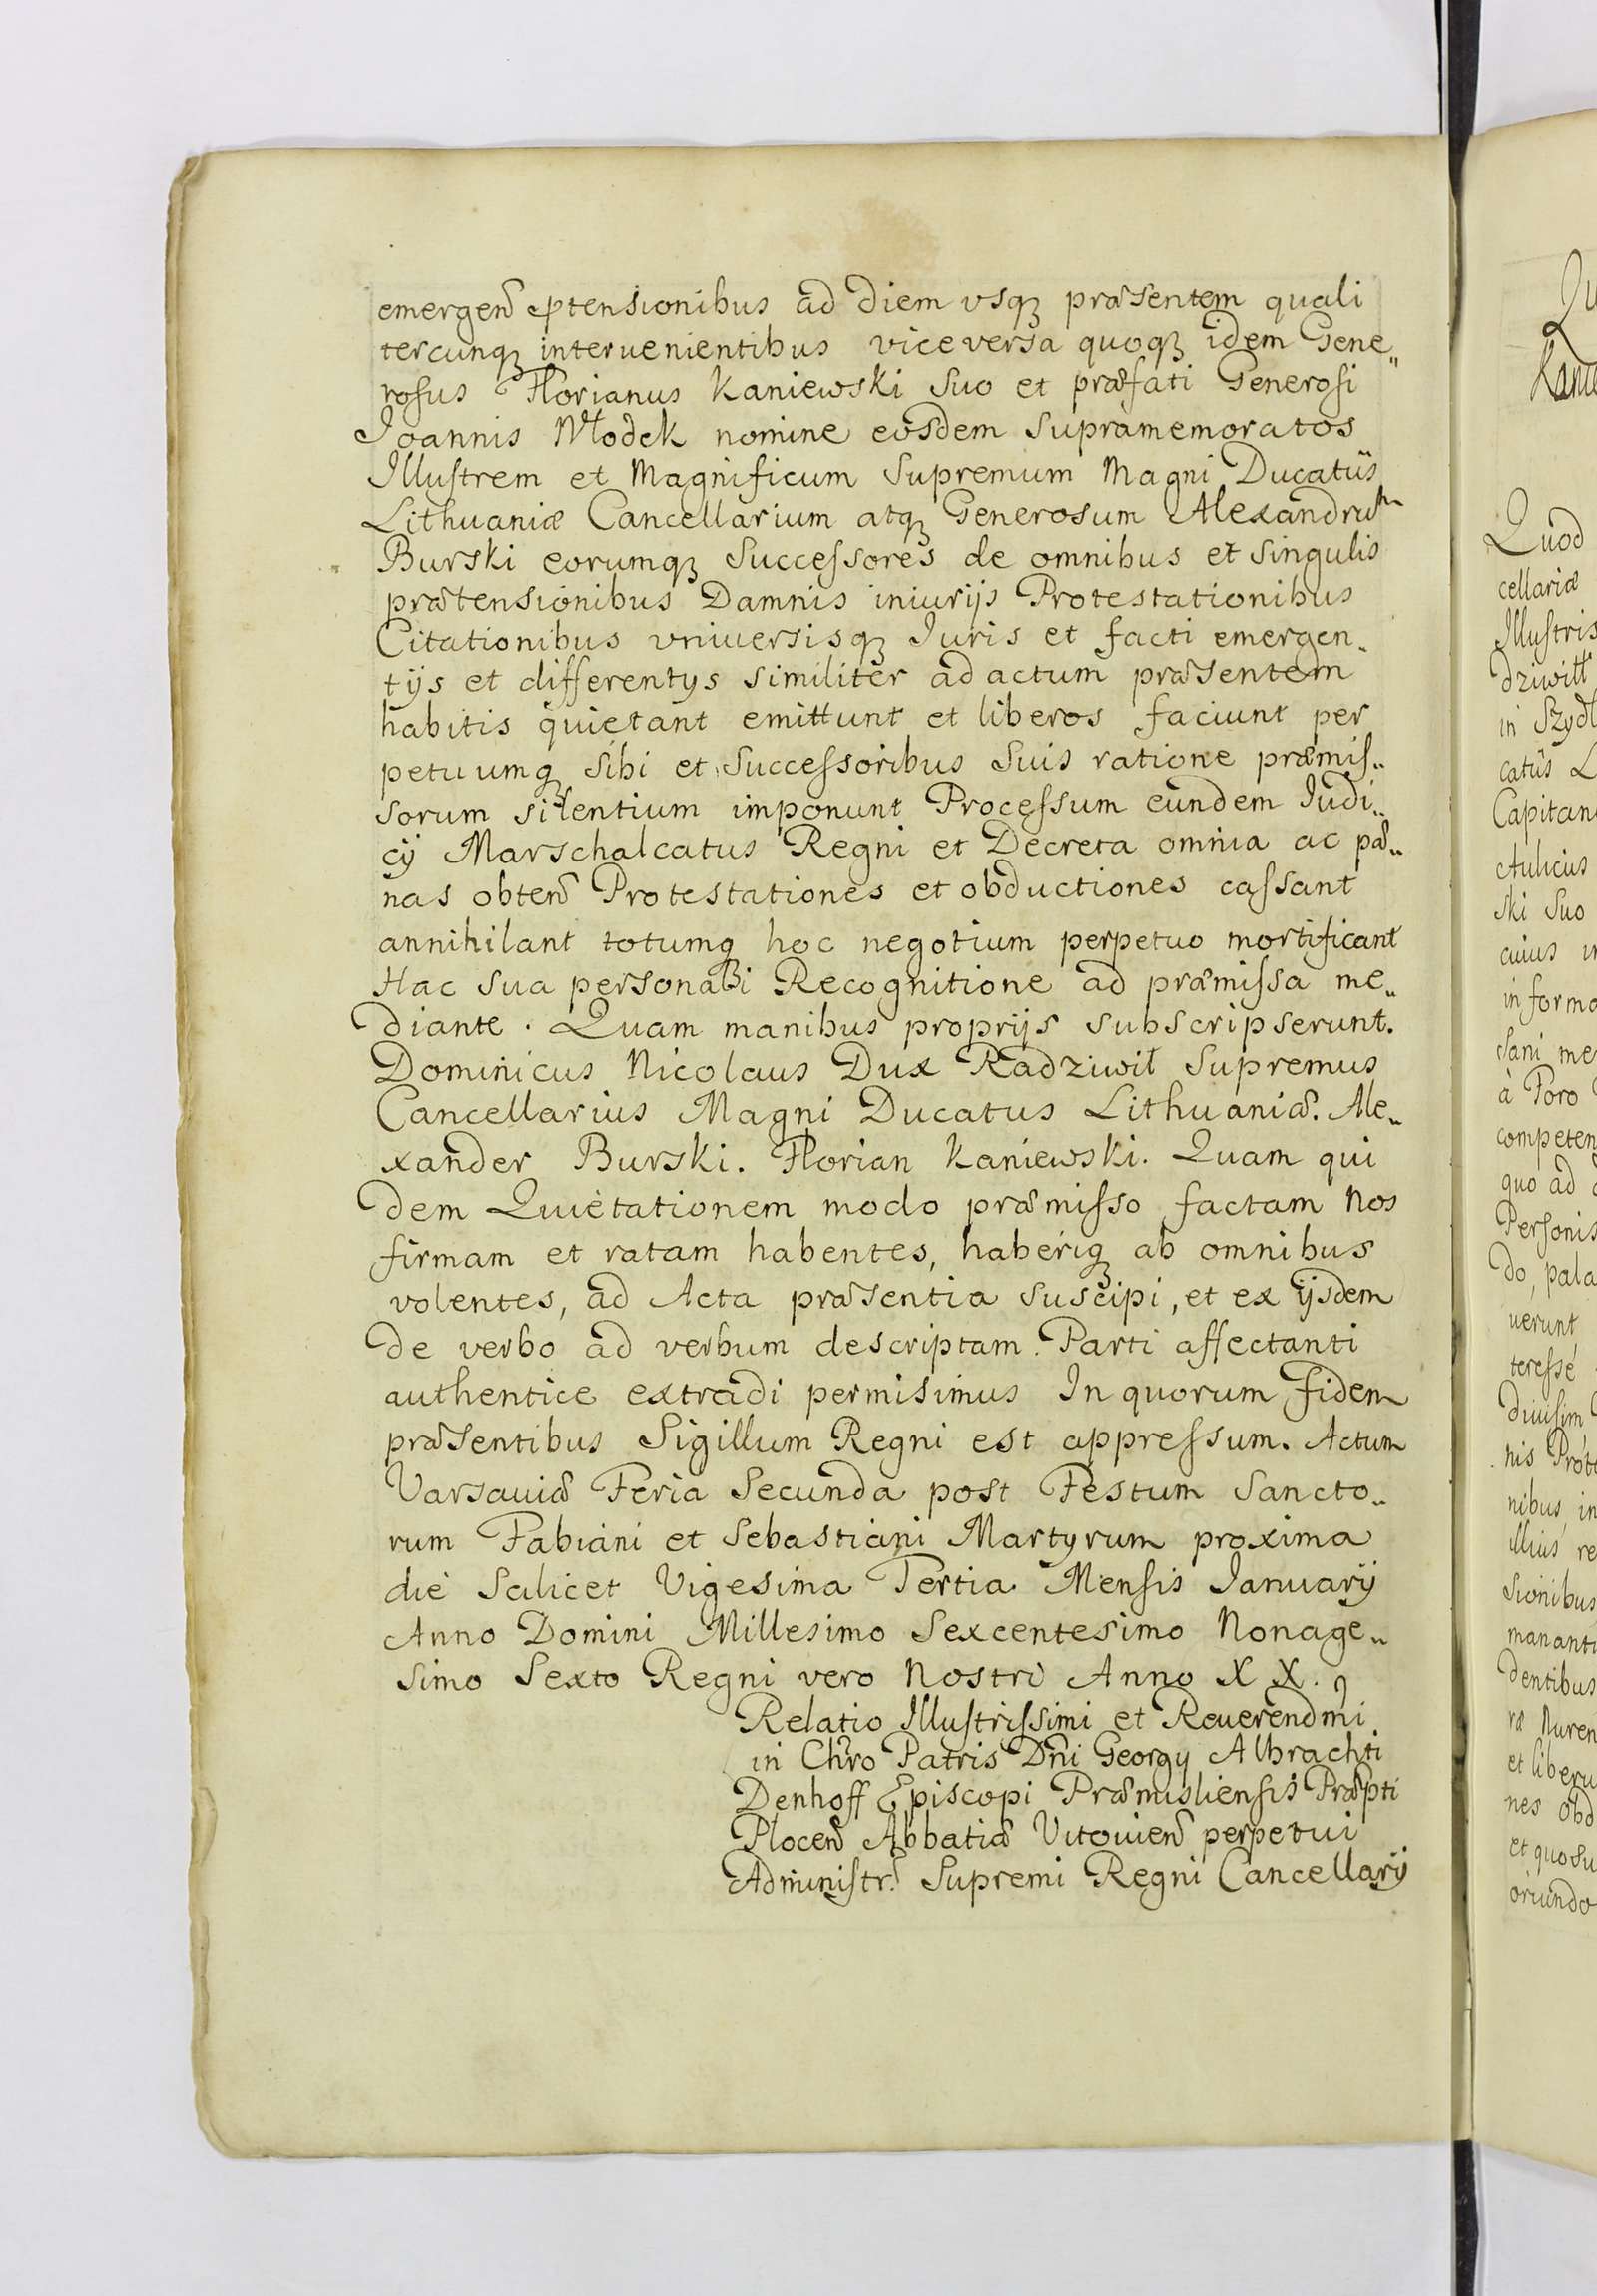 emergen̄ ptensionibus ad diem vsqꝫ præsentem quali
tercunqꝫ interuenientibus viceversa quoqꝫ idem Gene„
rosus Florianus Kaniewski Suo et præfati Generosi
Joannis Młodek nomine eosdem Supramemoratos
Illustrem et Magnificum Supremum Magni Ducatûs
Lithuaniæ Cancellarium atqꝫ Generosum Alexandrum
Burski eorumqꝫ Successores de omnibus et Singulis
prætensionibus Damnis iniurijs Protestationibus
Citationibus vniuersisqꝫ Iuris et facti emergen„
tijs et differentys similiter ad actum præsentem
habitis quietant emittunt et liberos faciunt per
petuumqꝫ Sibi et Successoribus Suis ratione præmis„
sorum silentium imponunt Processum eundem Iudi„
cij Marschalcatus Regni et Decreta omnia ac pæ„
nas obten̄ Protestationes et obductiones cassant
annihilant totumqꝫ hoc negotium perpetuo mortificant
Hac Sua personali Recognitione ad præmissa me„
diante. Quam manibus proprijs subscripserunt.
Dominicus Nicolaus Dux Radziwił Supremus
Cancellarius Magni Ducatus Lithuaniæ. Ale„
xander Burski. Florian Kaniewski. Quam qui
dem Quietationem modo præmisso factam Nos
firmam et ratam habentes, haberiqꝫ ab omnibus
volentes, ad Acta præsentia Suscipi, et ex ijsdem
de verbo ad verbum descriptam. Parti affectanti
authentice extradi permisimus In quorum fidem
præsentibus Sigillum Regni est appressum. Actum
Varsauiæ Feria Secunda post Festum Sancto„
rum Fabiani et Sebastiani Martyrum proxima
die Scilicet Vigesima Tertia Mensis Ianuarij
Anno Domini Millesimo Sexcentesimo Nonage„
simo Sexto Regni vero Nostri Anno X X.
Relatio Illustrissimi et Reuerendmi
in Chro Patris Dni Georgy Albrachti
Denhoff Episcopi Præmisliensis Præpti
Plocen̄ Abbatiæ Vitouien̄ perpetui
Administr. Supremi Regni Cancellarij
Quod
cellariæ
Illustris
dziwiłł
in Szydł
catûs L
Capitan
Aulicus
ski Suo
cuius in
in forma
sani me
à Foro
competen
quo ad
Personis
do, pala
uerunt
teresse
diuisim
nis Prot
nibus in
illius re
sionibus
mananti
dentibus
et liberu
nes obd
et quo su
oriundo